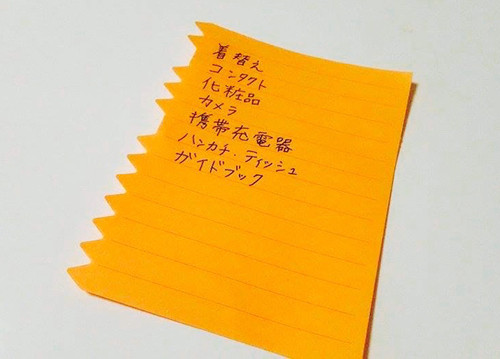 着替え
コンタクト
化粧品
カメラ
携帯充電器
ハンカチ・ティッシュ
ガイドブック